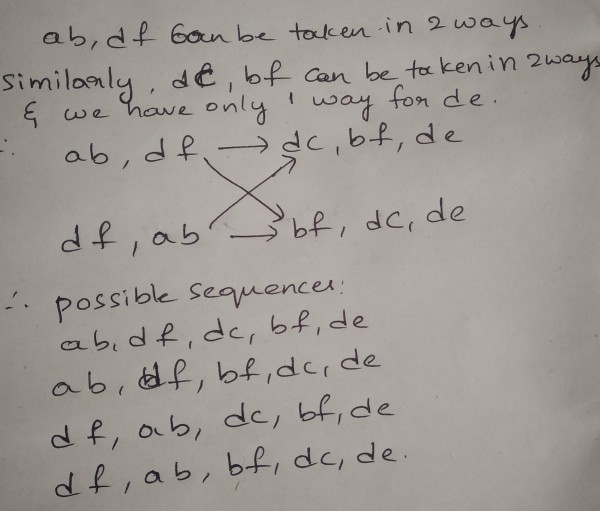 ab, df can be taken in 2 ways
similarly, dc, bf can be taken in 2 ways
& we have only 1 way for de.
∴ ab, df → dc, bf, de
df, ab → bf, dc, de
∴ possible sequences:
ab, df, dc, bf, de
ab, df, bf, dc, de
df, ab, dc, bf, de
df, ab, bf, dc, de.